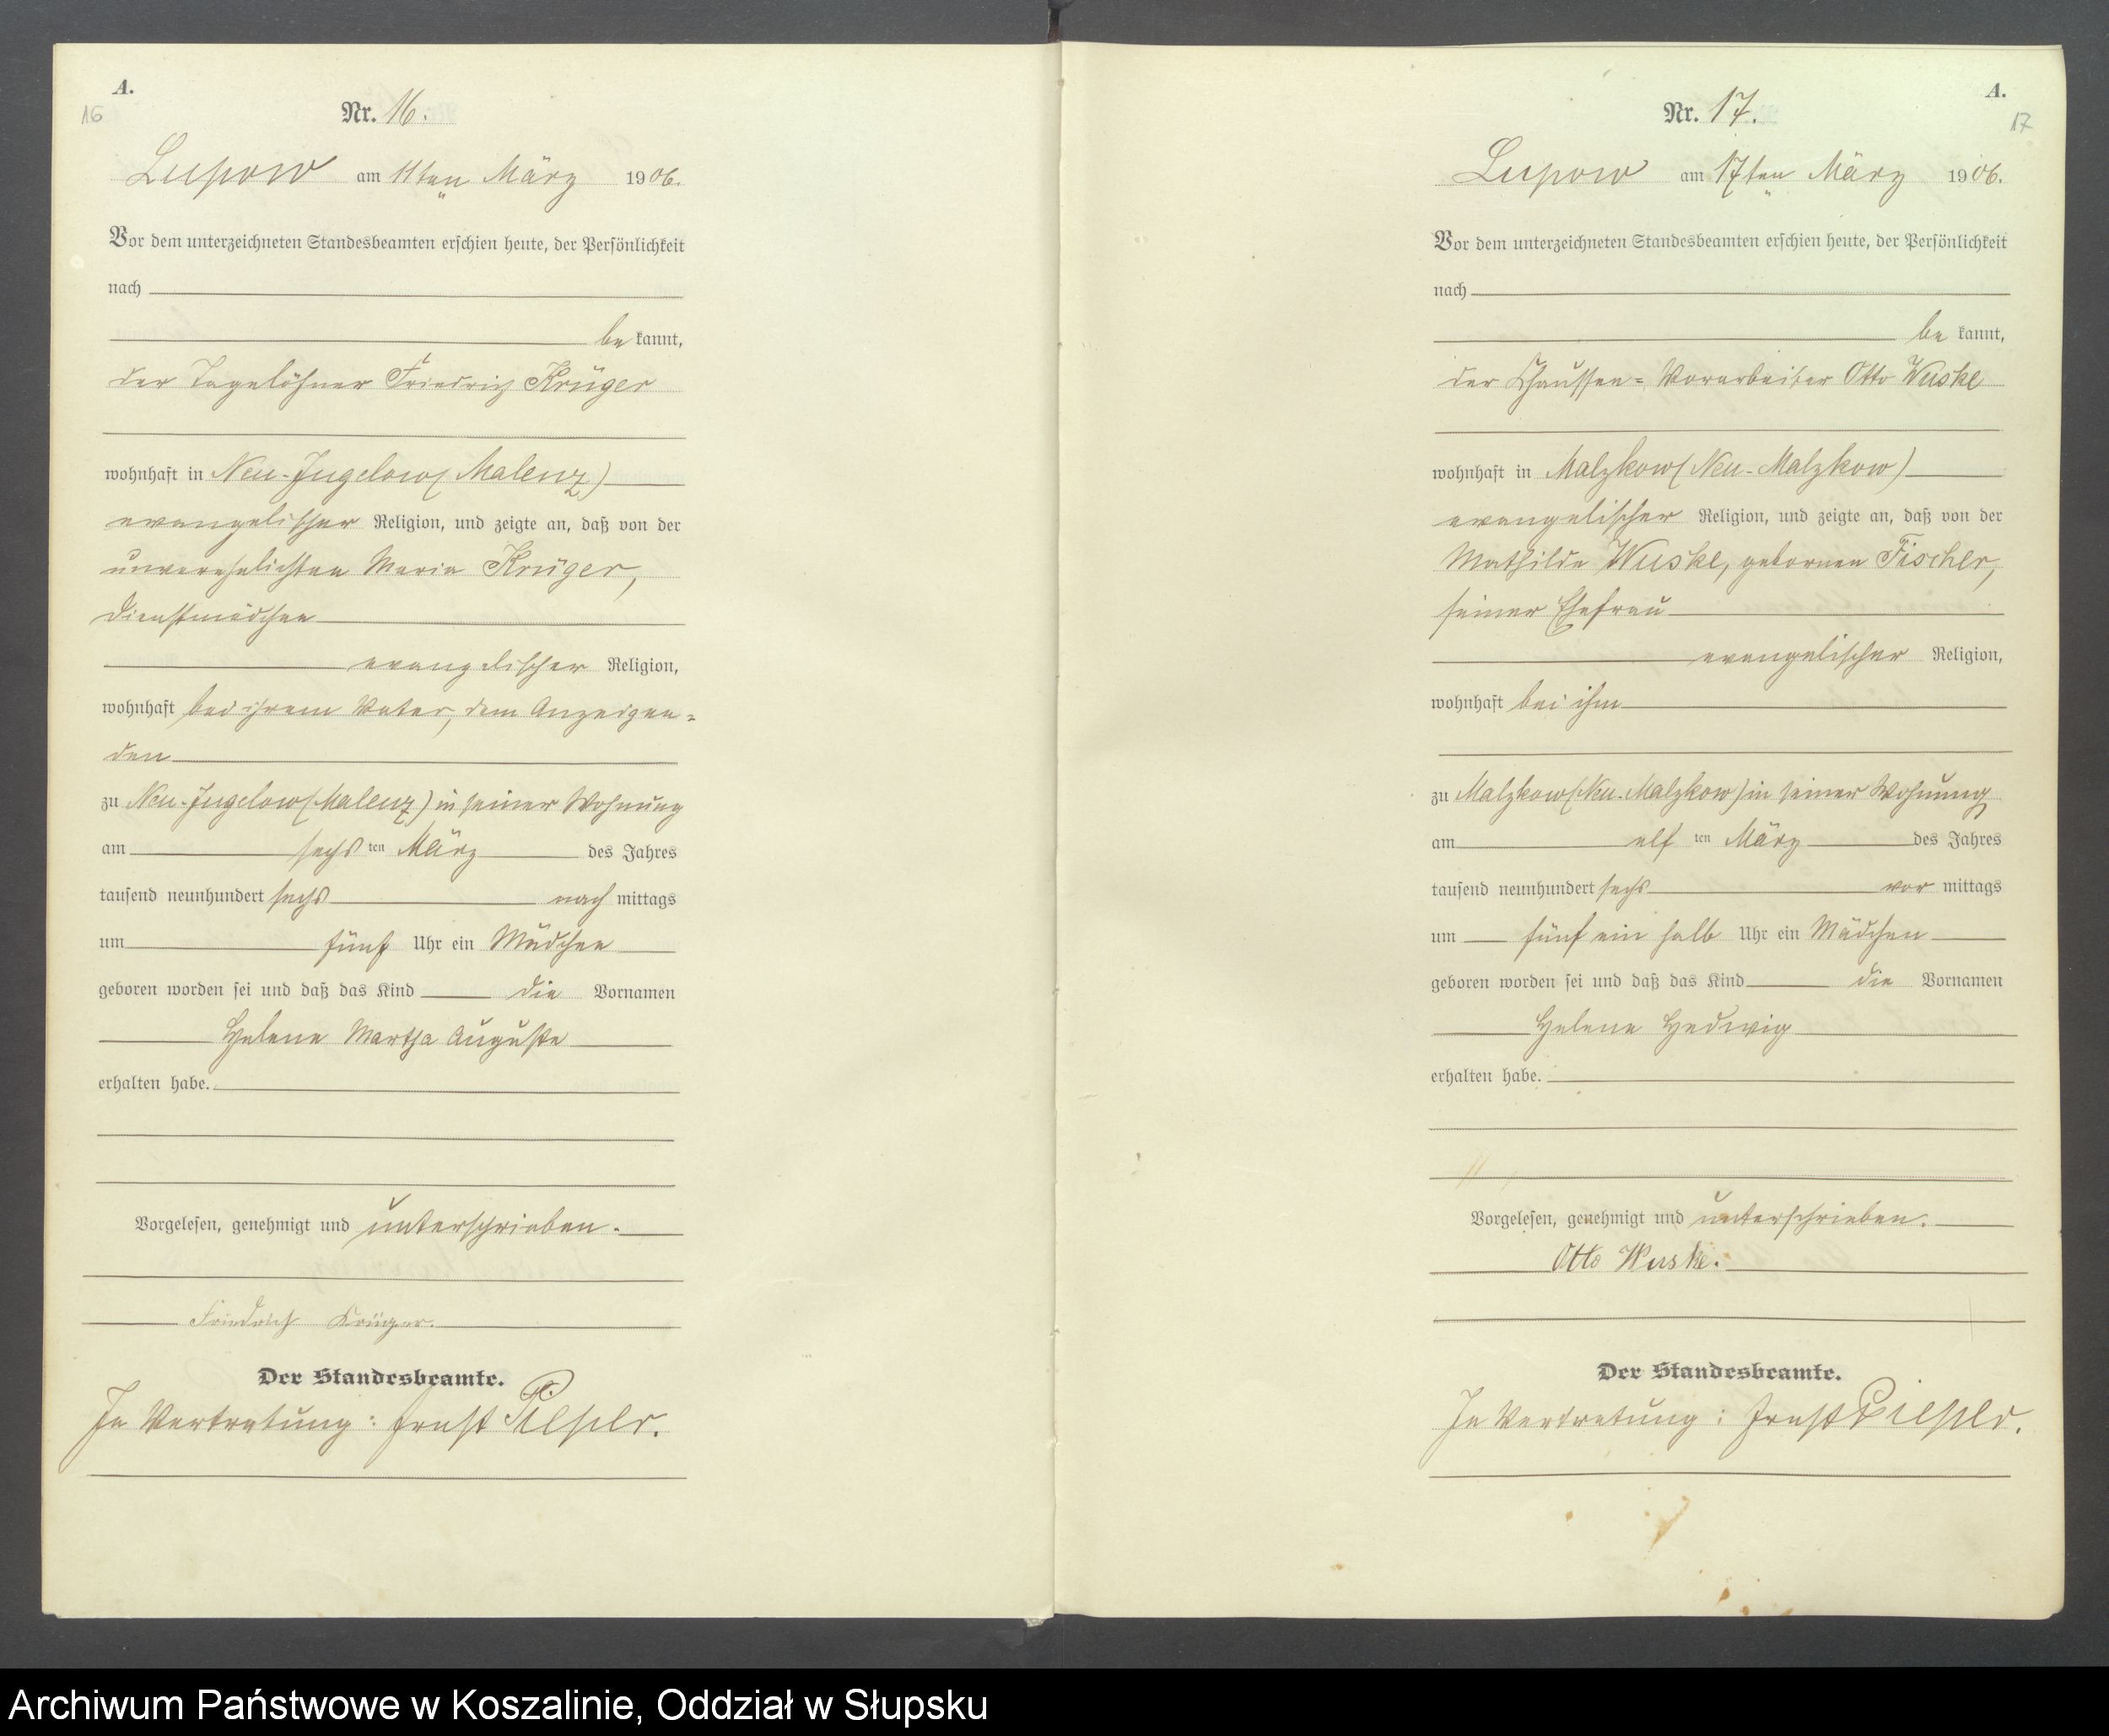 A.
16
Nr. 16.
Lupow am 11ten März 1906.
Vor dem unterzeichneten Standesbeamten erschien heute, der Persönlichkeit
nach
be kannt,
der Tagelöhner Friedrich Krüger
wohnhaft in Neu-Jugelow (Malenz)
evangelischer Religion, und zeigte an, daß von der
unverehelichten Maria Krüger,
Dienstmädchen
evangelischer Religion,
wohnhaft bei ihrem Vater, dem Anzeigen-
den
zu Neu-Jugelow (Malenz) in seiner Wohnung
am sechs ten März des Jahres
tausend neunhundert sechs nach mittags
um fünf Uhr ein Mädchen
geboren worden sei und daß das Kind die Vornamen
Helene Martha Auguste
erhalten habe.
Vorgelesen, genehmigt und unterschrieben.
Friedrich Krüger.
Der Standesbeamte.
In Vertretung: Ernst Piepler.
A.
17
Nr. 17.
Lupow am 17ten März 1906.
Vor dem unterzeichneten Standesbeamten erschien heute, der Persönlichkeit
nach
be kannt,
der Chaussee-Vorarbeiter Otto Wuske
wohnhaft in Malzkow (Neu-Malzkow)
evangelischer Religion, und zeigte an, daß von der
Mathilde Wuske, gebornen Fischer,
seiner Ehefrau
evangelischer Religion,
wohnhaft bei ihm
zu Malzkow (Neu-Malzkow) in seiner Wohnung
am elf ten März des Jahres
tausend neunhundert sechs vor mittags
um fünf ein halb Uhr ein Mädchen
geboren worden sei und daß das Kind die Vornamen
Helene Hedwig
erhalten habe.
Vorgelesen, genehmigt und unterschrieben.
Otto Wuske.
Der Standesbeamte.
In Vertretung: Ernst Piepler.
Archiwum Państwowe w Koszalinie, Oddział w Słupsku